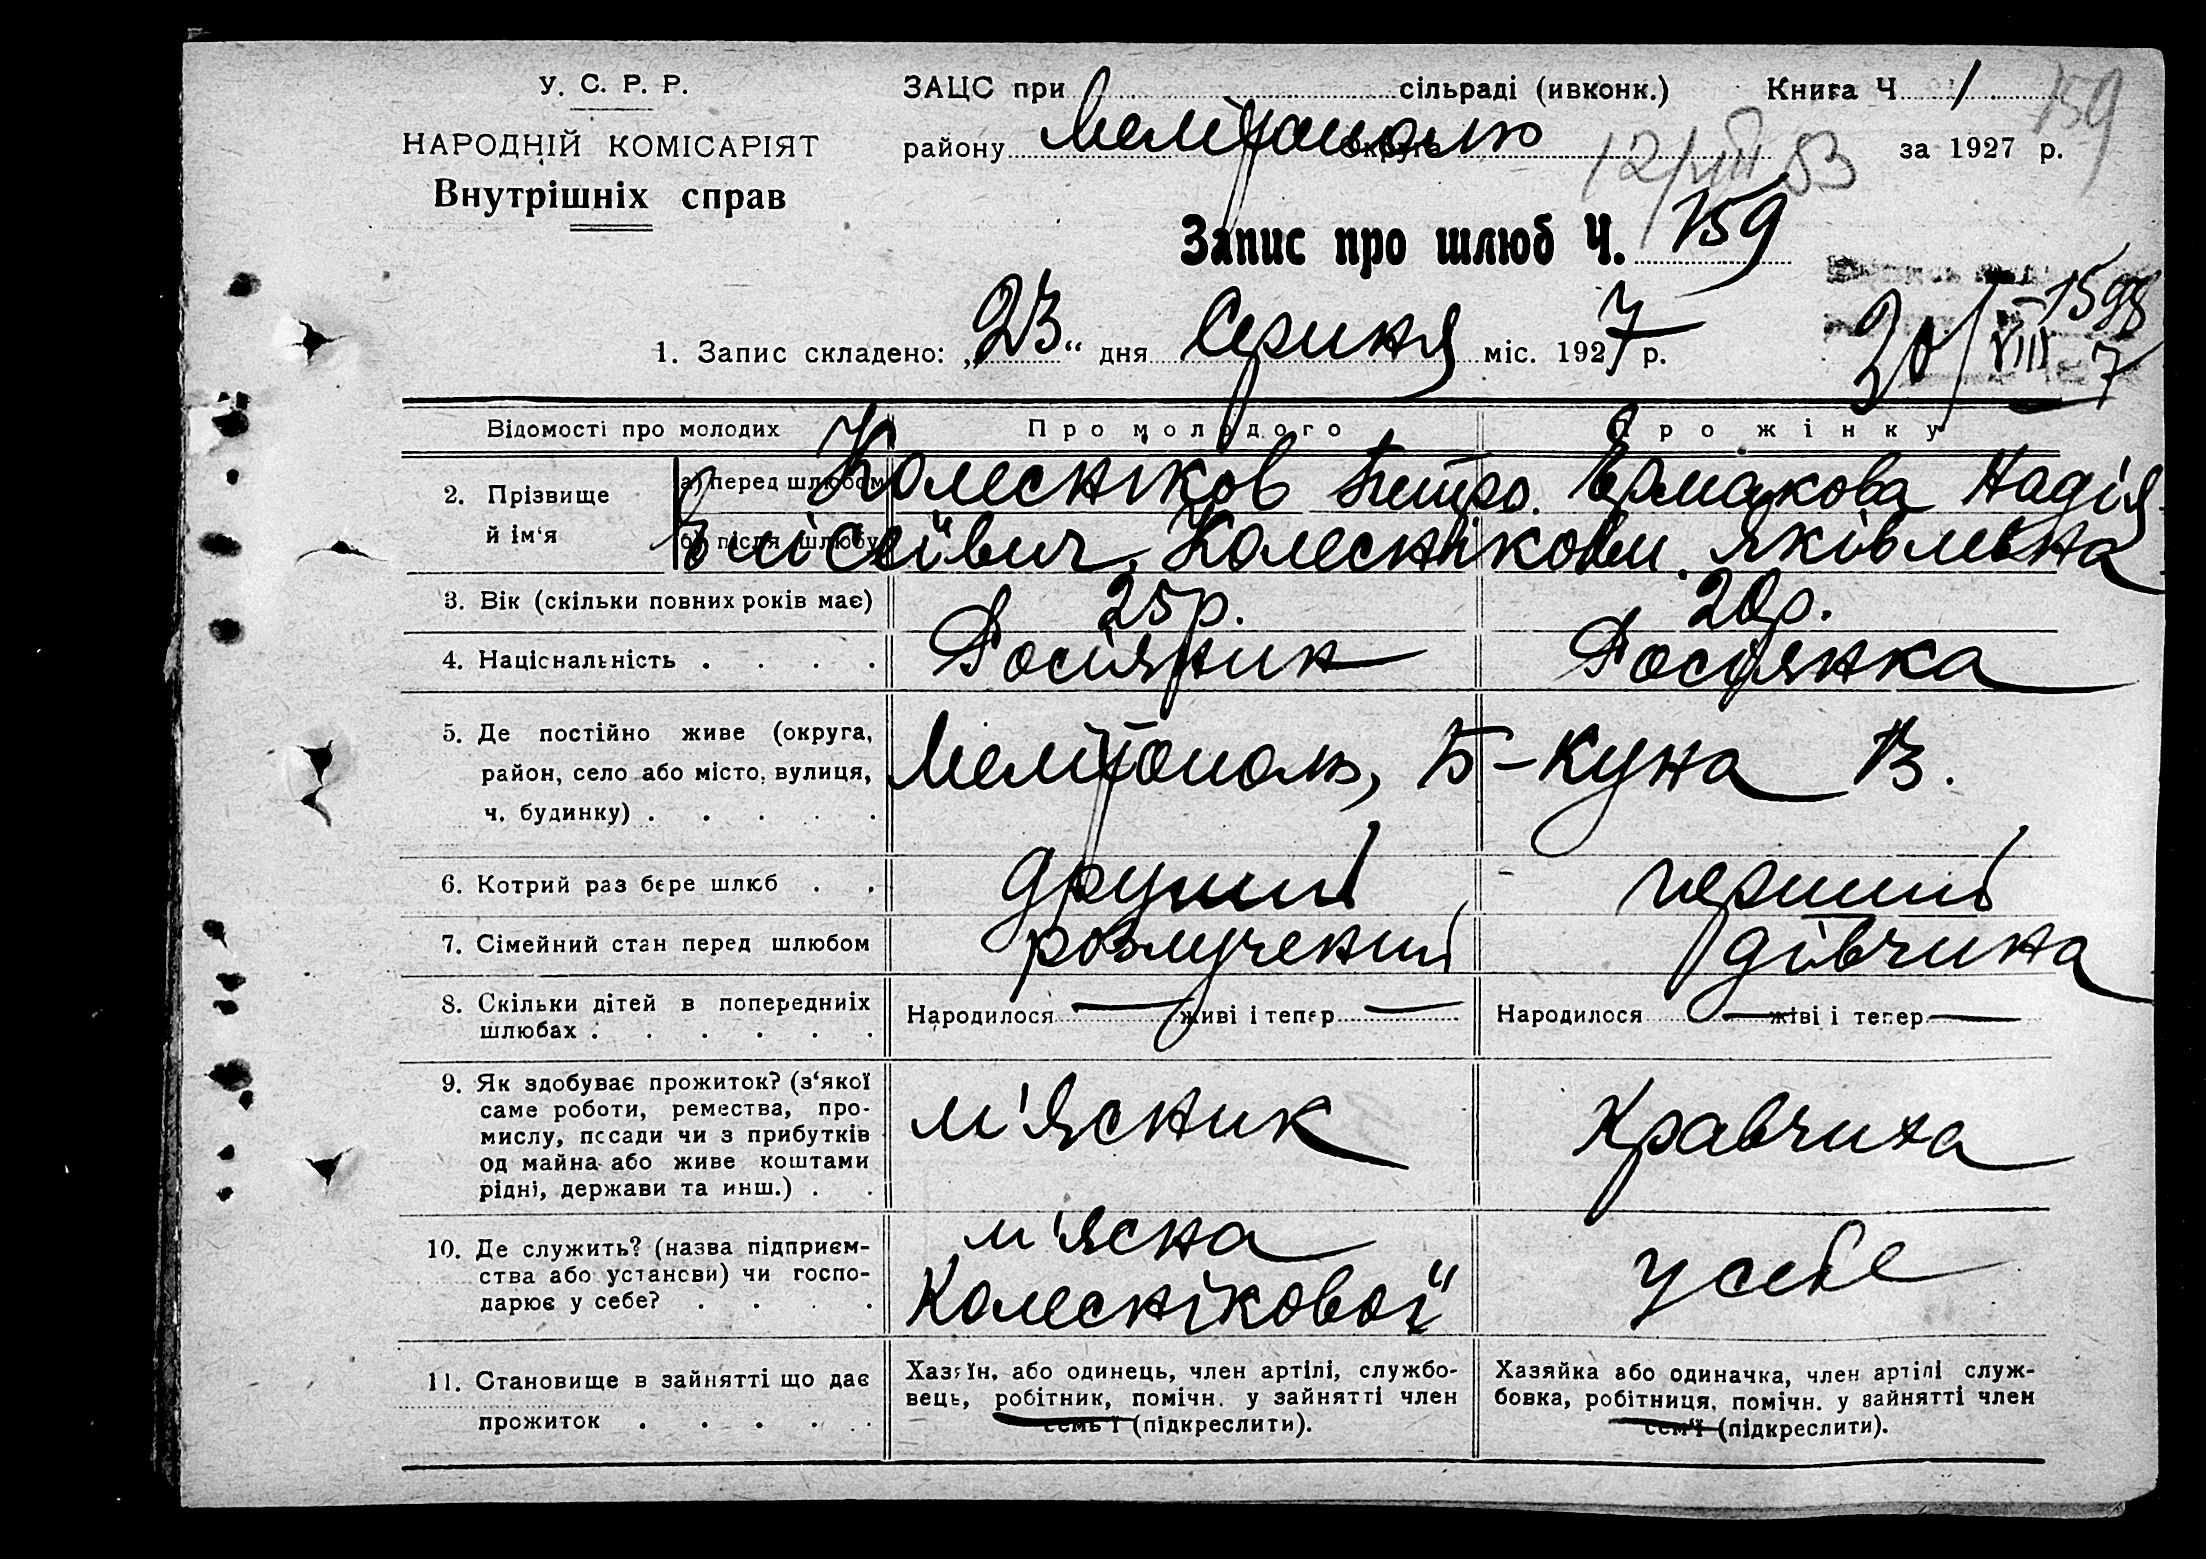 У. С. Р. Р.
НАРОДНІЙ КОМІСАРІЯТ
Внутрішніх справ
ЗАЦС при сільраді (ивконк.) Книга Ч. 1
159
району Мелітополю за 1927 р.
12/VIII 53
Запис про шлюб Ч. 159
1598
20/VIII 7
1. Запис складено: „23“ дня Серпня міс. 1927 р.
Відомості про молодих Про молодого Про жінку
2. Прізвище й ім'я
а) перед шлюбом Колесніков Петро Ермакова Надія
б) після шлюбу Колеснікови Яківлевна
3. Вік (скільки повних років має) 25р. 20р.
4. Національність . . . . Росіянин Росіянка
5. Де постійно живе (округа,
район, село або місто, вулиця, Мелітополь, Б-Куна 13.
ч. будинку) . . . . .
6. Котрий раз бере шлюб . . другий перший
7. Сімейний стан перед шлюбом розлучений дівчина
8. Скільки дітей в попередниіх Народилося — живі і тепер — Народилося — живі і тепер —
шлюбах . . . . . .
9. Як здобуває прожиток? (з'якої
саме роботи, ремества, про-
мислу, посади чи з прибутків м'ясник Кравчиха
од майна або живе коштами
рідні, держави та инш.) . .
10. Де служить? (назва підприєм- м'ясна
ства або установи) чи госпо- Колеснікової у себе
дарює у себе? . . . .
11. Становище в зайнятті що дає
прожиток . . . . .
Хазяїн, або одинець, член артілі, службо-
вець, робітник, помічн. у зайнятті член
семь'ї (підкреслити).
Хазяйка або одиначка, член артілі служ-
бовка, робітниця, помічн. у зайнятті член
сем'ї (підкреслити).